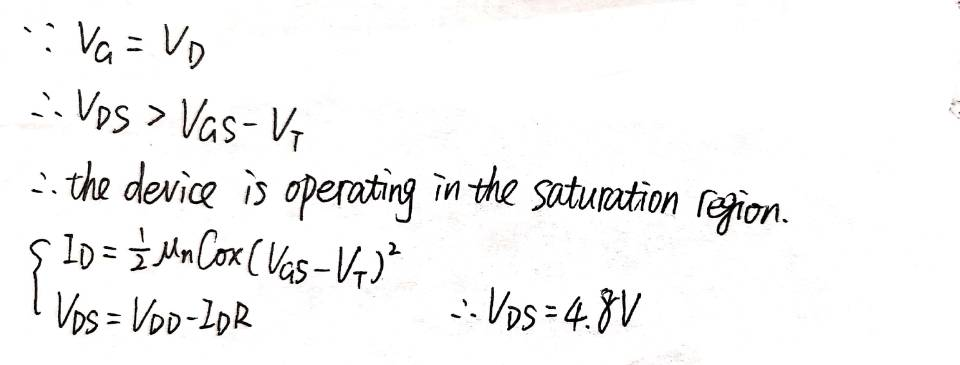 ∵ V_G = V_D
∴ V_DS > V_GS - V_T
∴ the device is operating in the saturation region.
{ I_D = 1/2 μ_n Cox (V_GS - V_T)²
V_DS = V_DD - I_D R ∴ V_DS = 4.8V